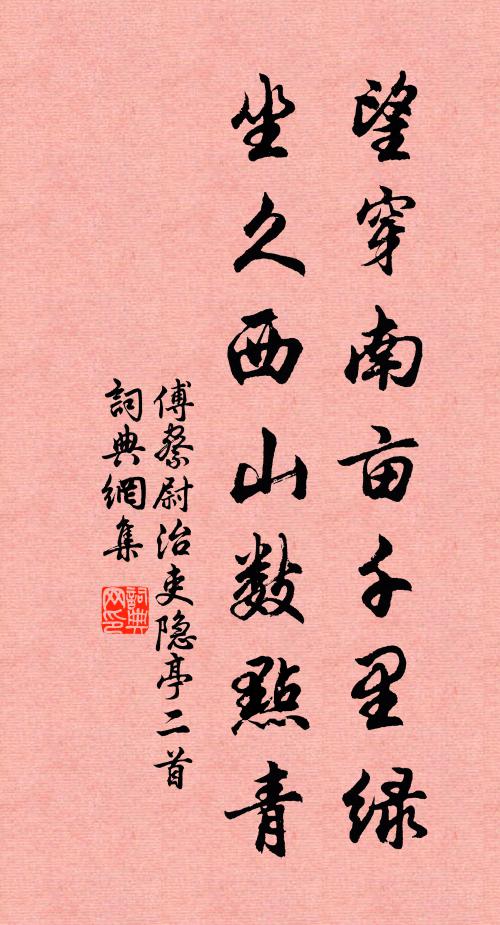 望穿南亩千里绿
坐久西山数點青
傅察尉治吏隐亭二首
詞典網集
詞典网印